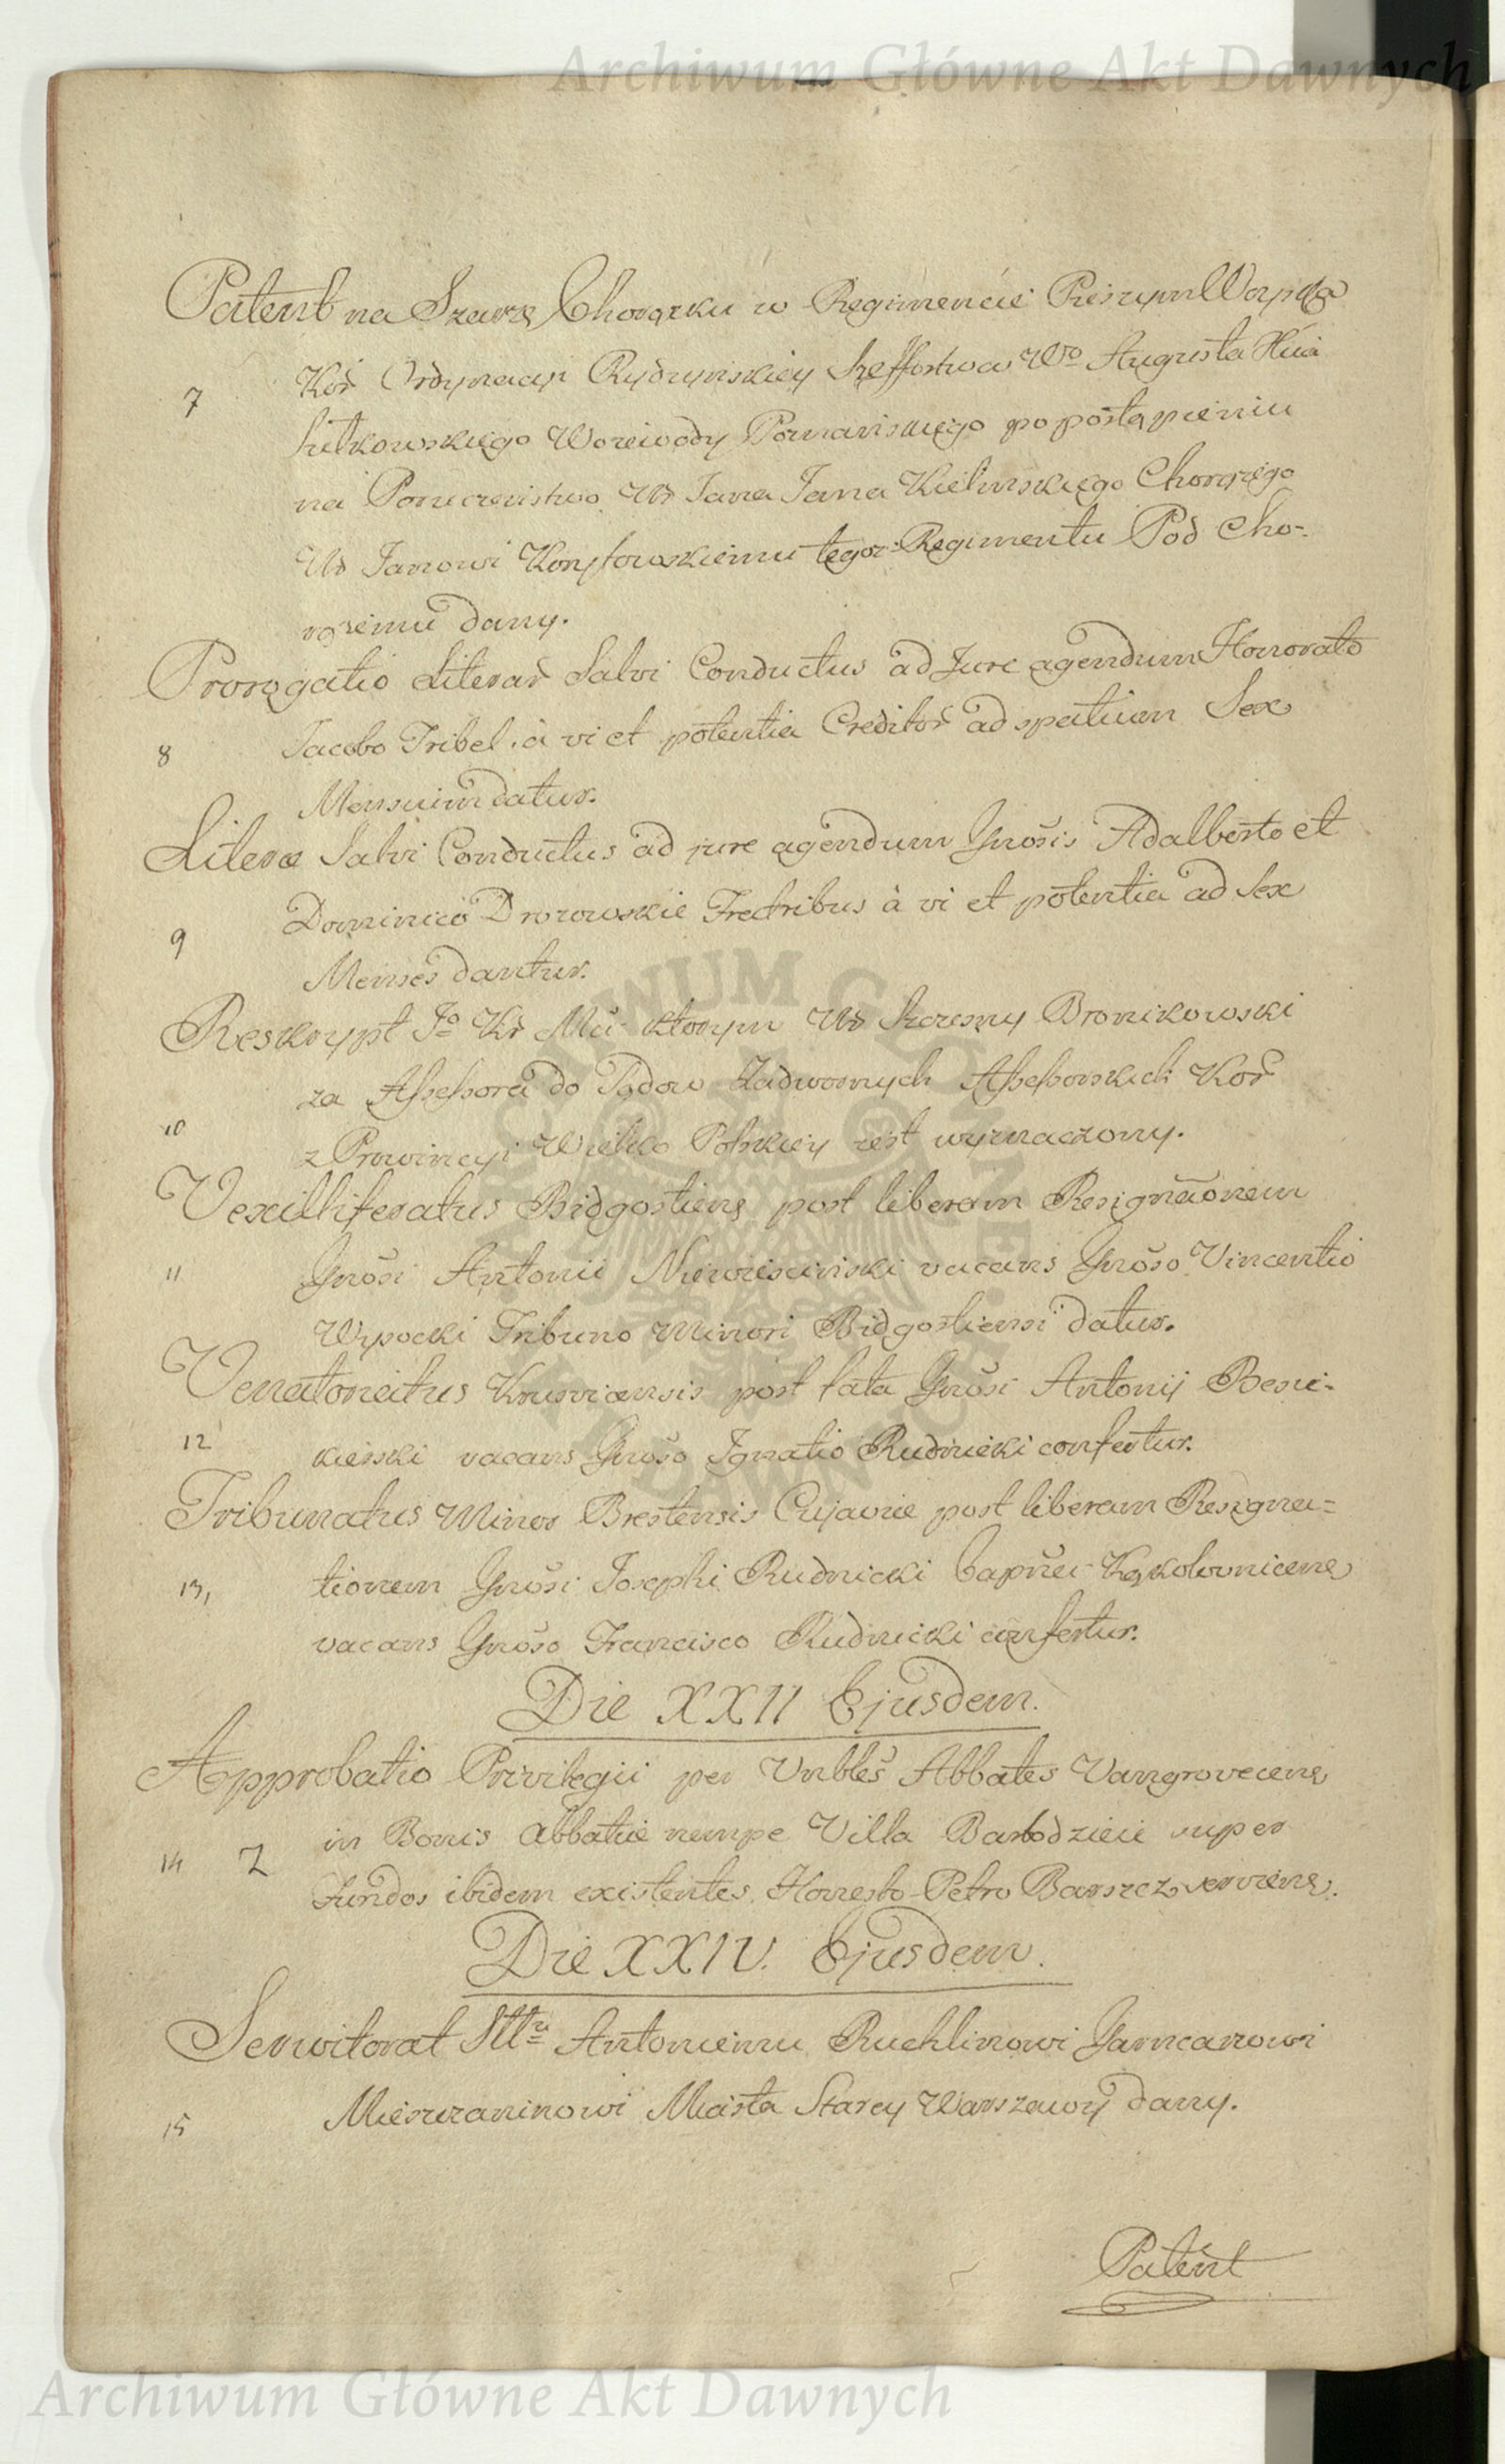 Archiwum Główne Akt Dawnych
Patent na Szarżę Chorążku w Regimencie Pieszym Woyska
7 Koř Ordynacyi Rydzynskiey Szeffostwa Wo Augusta Xcia
Sułkowskiego Woiewody Poznanskiego po postąpieniu
na Porucznistwo Ur Jana Jana Kielinskiego Chorążego
Ur Janowi Korytowskiemu tegoz Regimentu Pod Cho-
rązemu dany.
Prorogatio Literař Salvi Conductus ad Jure agendum Honorato
8 Jacobo Tribel à vi et potentia Creditoř ad spatium Sex
Mensium datur.
Literæ Salvi Conductus ad jure agendum Gnosis Adalberto et
9 Dominico Drozowskie Fratribus à vi et potentia ad Sex
Menses dantur.
Reskrypt Jo Kr Mci ktorym Ur Szczesny Bronikowski
za Assessora do Sądow Zadwornych Assessorskich Koř
10 z Prowincyi Wielko Polskiey iest wyznaczony.
Vexilliferatus Bidgostiens post liberam Resignaonem
11 Gnosi Antonii Niewiescinski vacans Gnoso Vincentio
Wysocki Tribuno Minori Bidgostiensi datur.
Venatoratus Krusviciensis post fata Gnosi Antonij Besie-
12 kierski vacans Gnoso Ignatio Rudnicki confertur.
Tribunatus Minor Brestensis Cujaviæ post liberam Resigna-
13, tionem Gnosi Josephi Rudnicki Capnei Kąkolovnicens
vacans Gnoso Francisco Rudnicki confertur.
Die XXII Ejusdem.
Approbatio Privilegii per Vnbles Abbates Vangrovecens
in Bonis Abbatiæ nempe Villa Bartodzieie super
14 Z Fundos ibidem existentes Honesto Petro Barszcz serviens.
Die XXIV. Ejusdem.
Serwitorat Sttu Antoniemu Ruehlinowi Garncarzowi
15 Mieszczaninowi Miasta Starey Warszawy dany.
Patent
Archiwum Główne Akt Dawnych